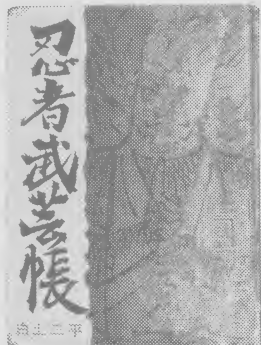 忍者武芸帳
白土三平